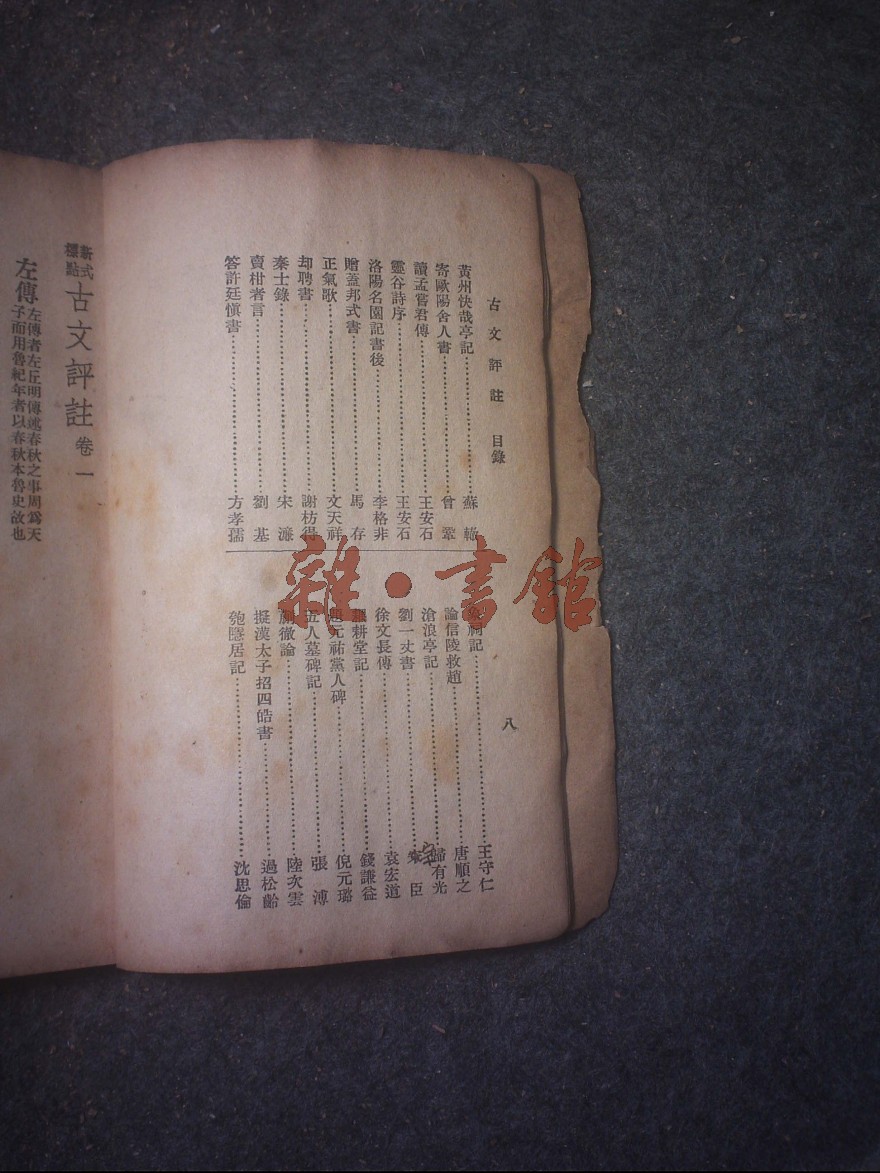 古文評註 目錄
八
黃州快哉亭記……蘇轍
寄歐陽舍人書……曾鞏
讀孟嘗君傳……王安石
靈谷詩序……王安石
洛陽名園記書後……李格非
贈蓋邦式書……馬存
正氣歌……文天祥
却聘書……謝枋得
秦士錄……宋濂
賣柑者言……劉基
答許廷慎書……方孝孺
祠記……王守仁
論信陵救趙……唐順之
滄浪亭記……歸有光
劉一丈書……宗臣
徐文長傳……袁宏道
耕堂記……錢謙益
元祐黨人碑……倪元璐
五人墓碑記……張溥
蒯徹論……陸次雲
擬漢太子招四皓書……過松齡
居記……沈思倫
新式標點
古文評註 卷一
左傳
左傳者左丘明傳述春秋之事周爲天
子而用魯紀年者以春秋本魯史故也
雜·書館